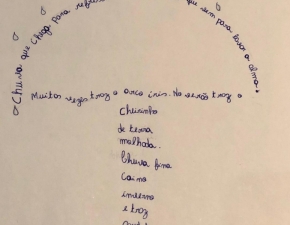 Chuva que chega para refres
que vem para lavar a alma.
Muitas vezes traz o arco iris. No verão traz o
cheirinho
de terra
molhada.
Chuva fina
Caino
inverno
e traz